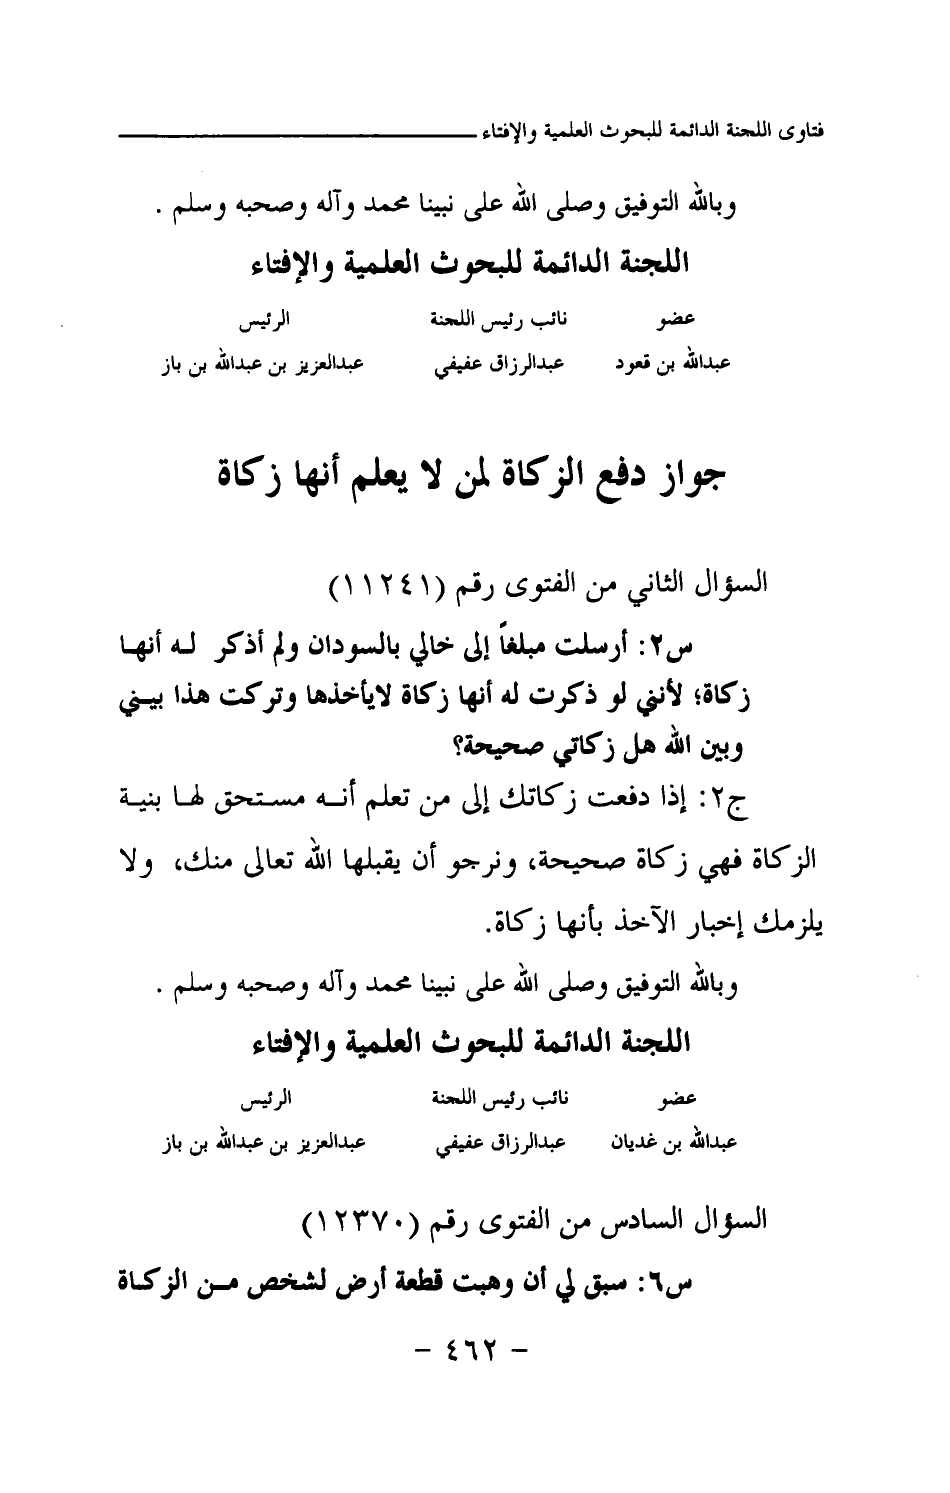 فتاوى اللجنة الدائمة للبحوث العلمية والإفتاء
وبالله التوفيق وصلى الله على نبينا محمد وآله وصحبه وسلم .
اللجنة الدائمة للبحوث العلمية والإفتاء
عضو نائب رئيس اللجنة الرئيس
عبدالله بن قعود عبدالرزاق عفيفي عبدالعزيز بن عبدالله بن باز
جواز دفع الزكاة لمن لا يعلم أنها زكاة
السؤال الثاني من الفتوى رقم (١١٢٤١)
س٢: أرسلت مبلغاً إلى خالي بالسودان ولم أذكر له أنها
زكاة؛ لأنني لو ذكرت له أنها زكاة لايأخذها وتركت هذا بيني
وبين الله هل زكاتي صحيحة؟
ج٢: إذا دفعت زكاتك إلى من تعلم أنه مستحق لها بنية
الزكاة فهي زكاة صحيحة، ونرجو أن يقبلها الله تعالى منك، ولا
يلزمك إخبار الآخذ بأنها زكاة.
وبالله التوفيق وصلى الله على نبينا محمد وآله وصحبه وسلم .
اللجنة الدائمة للبحوث العلمية والإفتاء
عضو نائب رئيس اللجنة الرئيس
عبدالله بن غديان عبدالرزاق عفيفي عبدالعزيز بن عبدالله بن باز
السؤال السادس من الفتوى رقم (١٢٣٧٠)
س٦: سبق لي أن وهبت قطعة أرض لشخص من الزكاة
- ٤٦٢ -